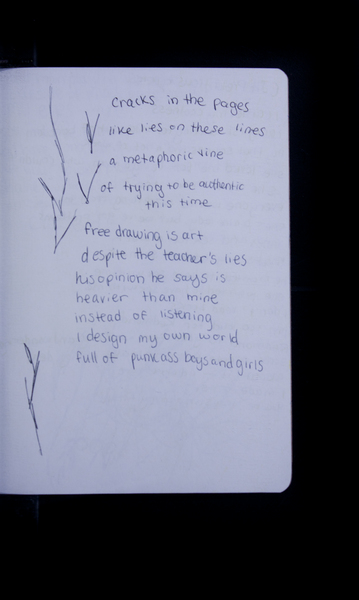 cracks in the pages
like lies on these lines
a metaphoric vine
of trying to be authentic
this time
free drawing is art
despite the teacher's lies
his opinion he says is
heavier than mine
instead of listening
I design my own world
full of punkass boys and girls